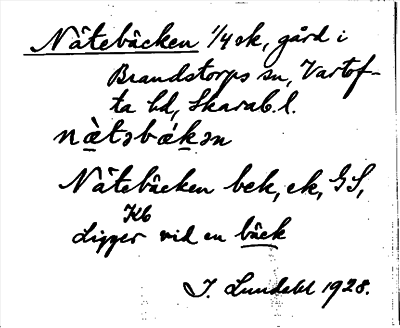 Nätebäcken 1/4 sk, gård i
Brandstorps sn, Vartof-
ta hd, Skarab. l.
nätəbäkən
Nätebäcken bek, ek, GS,
Kb
Ligger vid en bäck
I. Lundahl 1928.